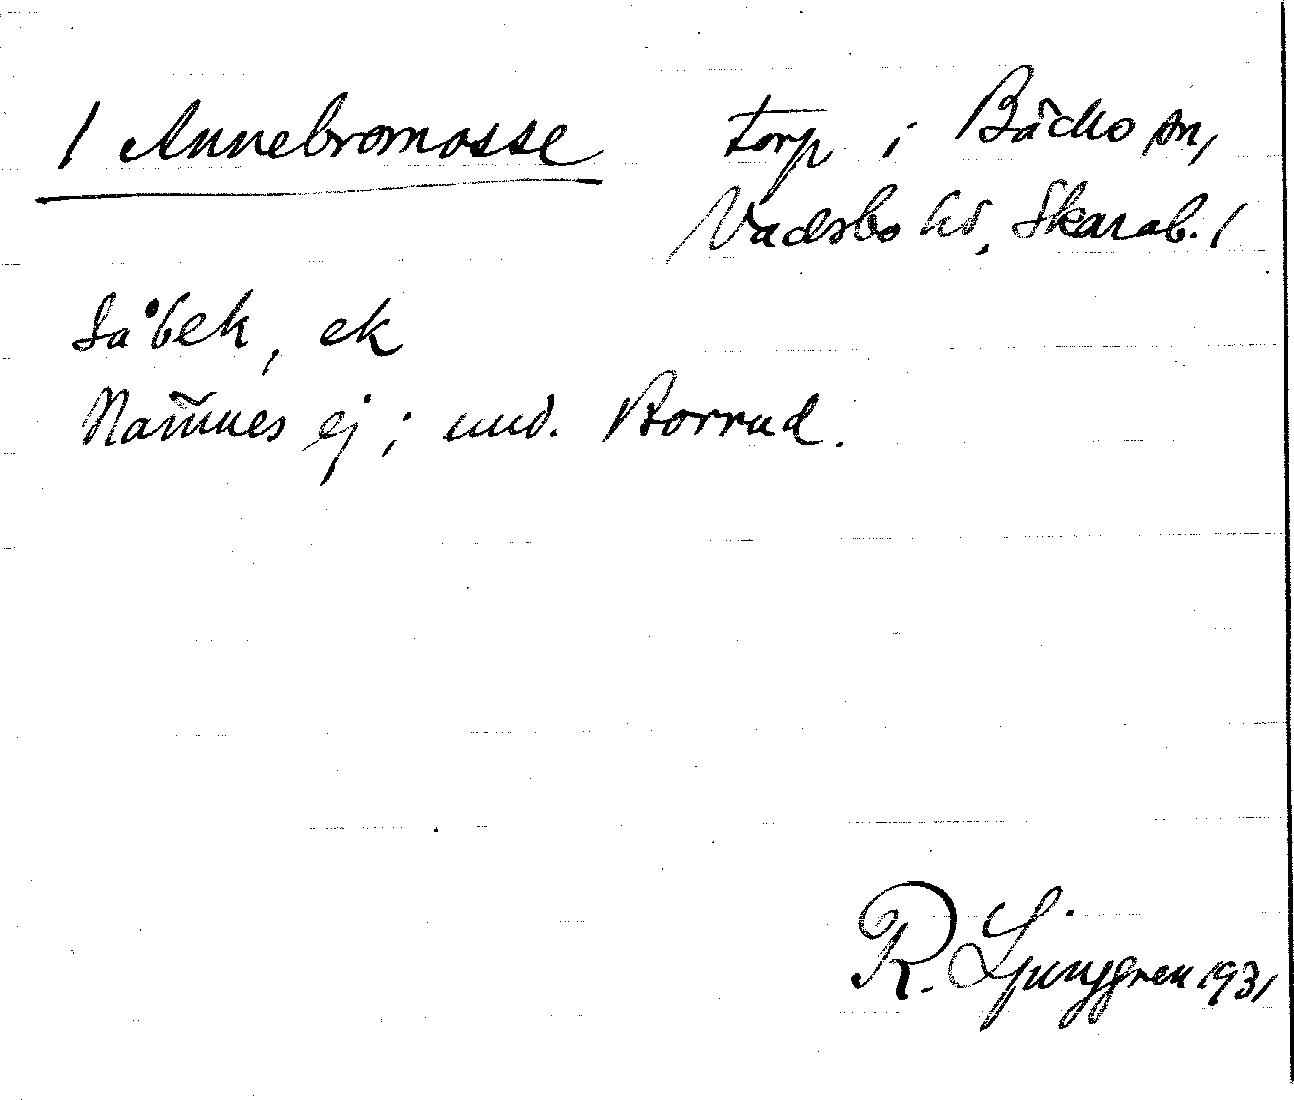 / Annebromosse torp i Bäcko sn,
Vadsbo hd, Skarab. /
Såbek, ek
Nam̃nes ej; und. Borrud.
R. Ljunggren 1931